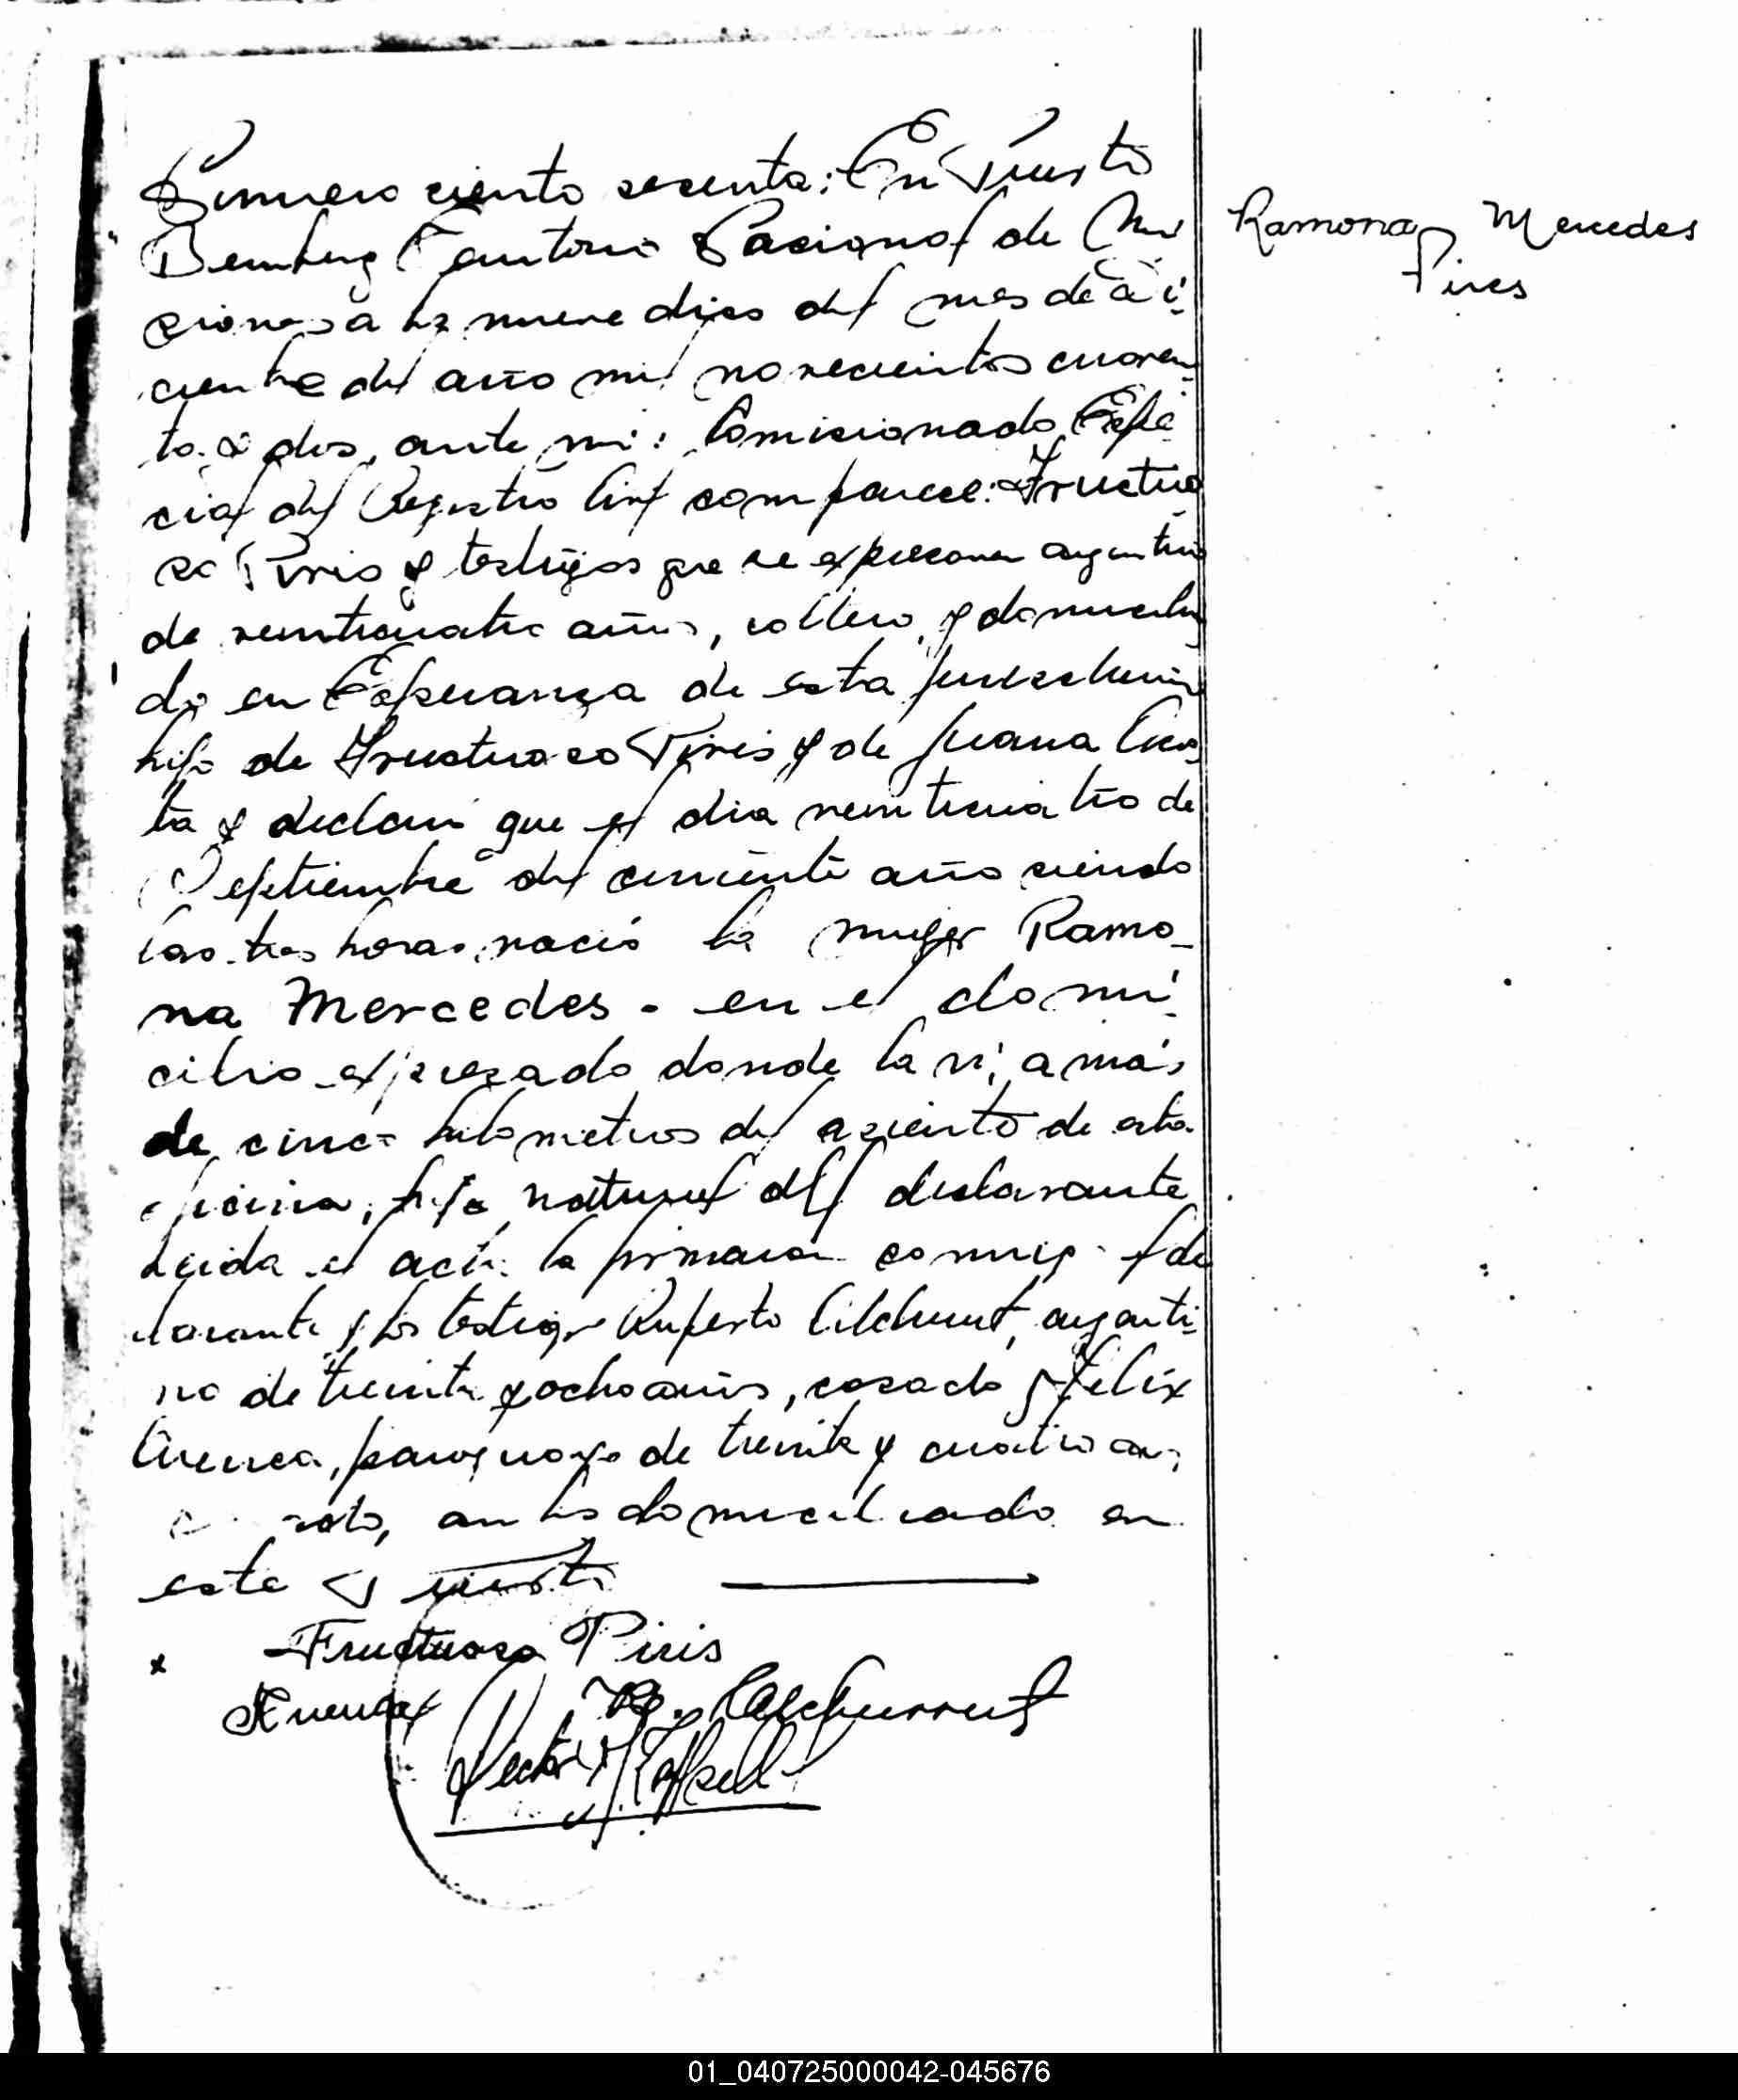 Numero ciento sesenta: En Puerto
Bemberg Territorio Nacional de Mi
siones a los nueve dias del mes de di-
ciembre del año mil novecientos cuaren-
ta y dos, ante mi: Comisionado Espe-
cial del Registro Civil comparece: Fructuo
so Piris y testigos que se expresan argentino
de veinticuatro años, soltero, y domicilia
do en Esperanza de esta jurisdiccion
hijo de Fructuoso Piris y de Juana Acos
ta y declaró que el dia veinticuatro de
Septiembre del corriente año siendo
las tres horas nació la mujer Ramo-
na Mercedes. en el domi-
cilio expresado donde la vi, a más
de cinco kilometros del asiento de esta
oficina, hija natural del declarante
Leida el acta la firmaron conmigo el de
clarante y los testigos Ruperto Alchurrut, argenti-
no de treinta y ocho años, casado y Felix
Cuenca, paraguayo de treinta y cuatro
ambos domiciliado en
este Puerto
Ramona Mercedes
Pires
x Fructuoso Piris
R. Alchurrut
01_040725000042-045676